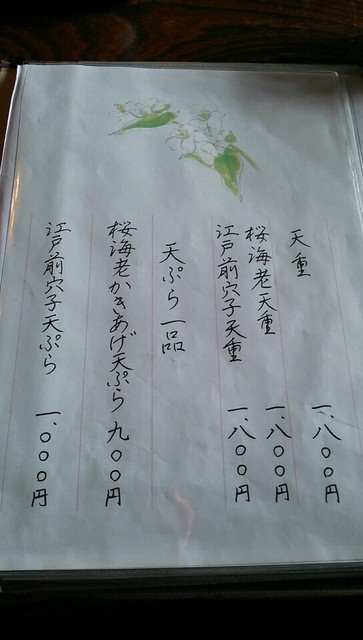 天重 一、八〇〇円
桜海老天重 一、八〇〇円
江戸前穴子天重 一、八〇〇円
天ぷら一品
桜海老かきあげ天ぷら 九〇〇円
江戸前穴子天ぷら 一、〇〇〇円